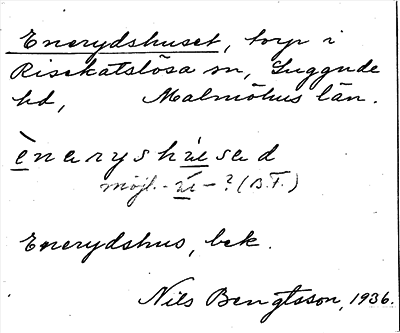 Enerydshuset, torp i
Risekatslösa sn, Luggude
hd, Malmöhus län.
ènaryshúesad
möjl. - úe - ? (B.F.)
Enerydshus, bek.
Nils Bengtsson, 1936.